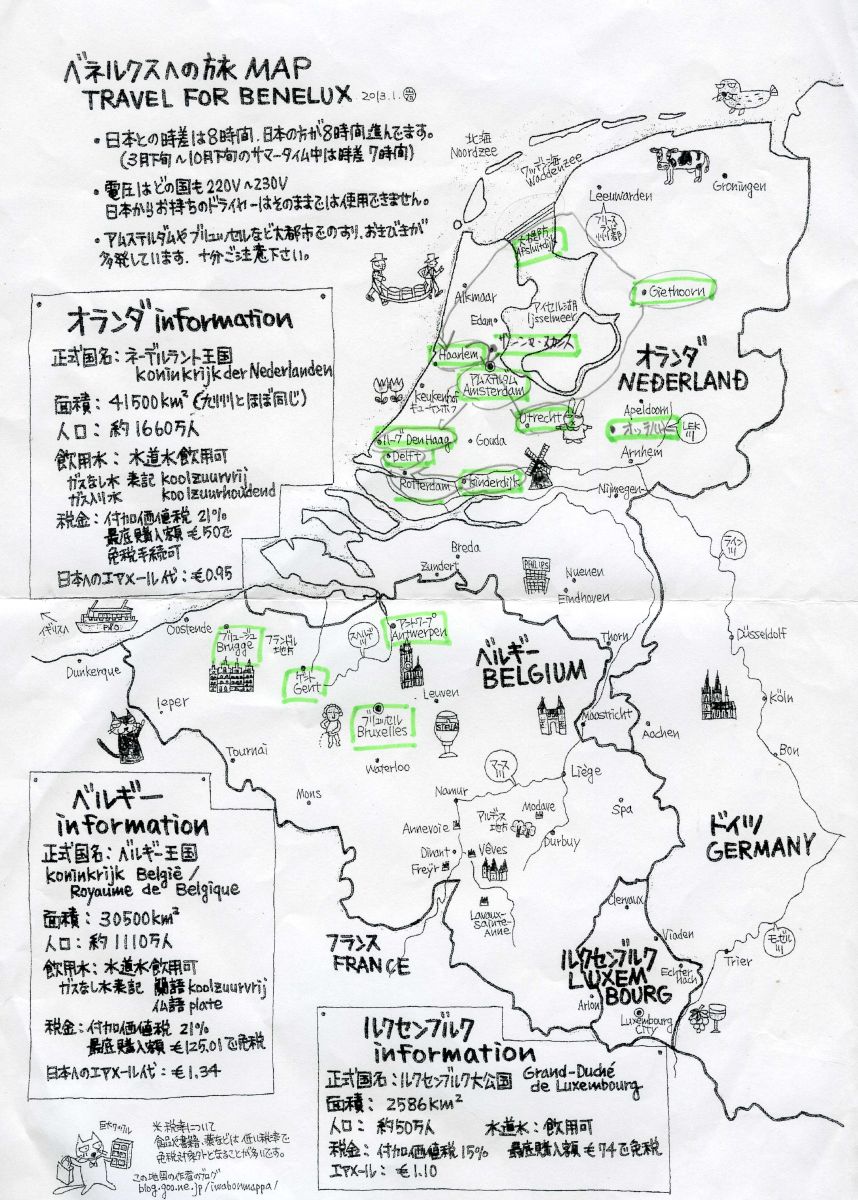 ベネルクスへの旅 MAP
TRAVEL FOR BENELUX 2013.1.
・日本との時差は8時間、日本の方が8時間進んでます。
(3月下旬~10月下旬のサマータイム中は時差7時間)
・電圧はどの国も220V~230V
日本からお持ちのドライヤーはそのままでは使用できません。
・アムステルダムやブリュッセルなど大都市でのすり、おきびきが
多発しています。十分ご注意下さい。
北海
Noordzee
ワッデン海
Waddenzee
Leeuwarden
フリースランド州州都
Groningen
大堤防
Afsluitdijk
Giethoorn
Alkmaar
アイセル湖
Ijsselmeer
Edam
ザーンセ・スカンス
Haarlem
アムステルダム
Amsterdam
オランダ
NEDERLAND
Keukenhof
キューケンホフ
Utrecht
Apeldoorn
オッテルロー
LEK川
ハーグ Den Haag
Gouda
Delft
Arnhem
Rotterdam
Kinderdijk
Nijmegen
オランダ information
正式国名:ネーデルラント王国
Koninkrijk der Nederlanden
面積:41500km²(九州とほぼ同じ)
人口:約1660万人
飲用水:水道水飲用可
ガスなし水 表記 koolzuurvrij
ガス入り水 koolzuurhoudend
税金:付加価値税21%
最底購入額€50で
免税手続可
日本へのエアメール代:€0.95
Breda
Zundert
PHILIPS
Nuenen
Eindhoven
ライン川
イギリスへ
P&O
Oostende
ブリュージュ
Brugge
フランドル
地方
スヘルデ川
アントワープ
Antwerpen
ベルギー
BELGIUM
Thorn
Düsseldolf
Dunkerque
ゲント
Gent
Leuven
Köln
Ieper
ブリュッセル
Bruxelles
STELLA
Maastricht
Aachen
Bon
Tournai
Waterloo
マース川
Liège
Mons
Namur
Spa
アルデンヌ
地方
Modave
Annevoie
Durbuy
ドイツ
GERMANY
Dinant
Vêves
Freÿr
Lavaux-
Sainte-
Anne
Clervaux
フランス
FRANCE
ルクセンブルク
LUXEM
BOURG
Vianden
モーゼル川
Echter
nach
Trier
Arlon
Luxembourg
CITY
ベルギー
information
正式国名:ベルギー王国
Koninkrijk België /
Royaume de Belgique
面積:30500km²
人口:約1110万人
飲用水:水道水飲用可
ガスなし水表記 蘭語 koolzuurvrij
仏語 plate
税金:付加価値税 21%
最底購入額€125.01で免税
日本へのエアメール代:€1.34
ルクセンブルク
information
正式国名:ルクセンブルク大公国 Grand-Duché
de Luxembourg
面積:2586km²
人口:約50万人 水道水:飲用可
税金:付加価値税15% 最底購入額€74で免税
エアメール:€1.10
※税率について
食品や書籍、薬などは低い税率で
免税対象外となることが多いです。
この地図の作者のブログ
blog.goo.ne.jp/iwabonmappa/